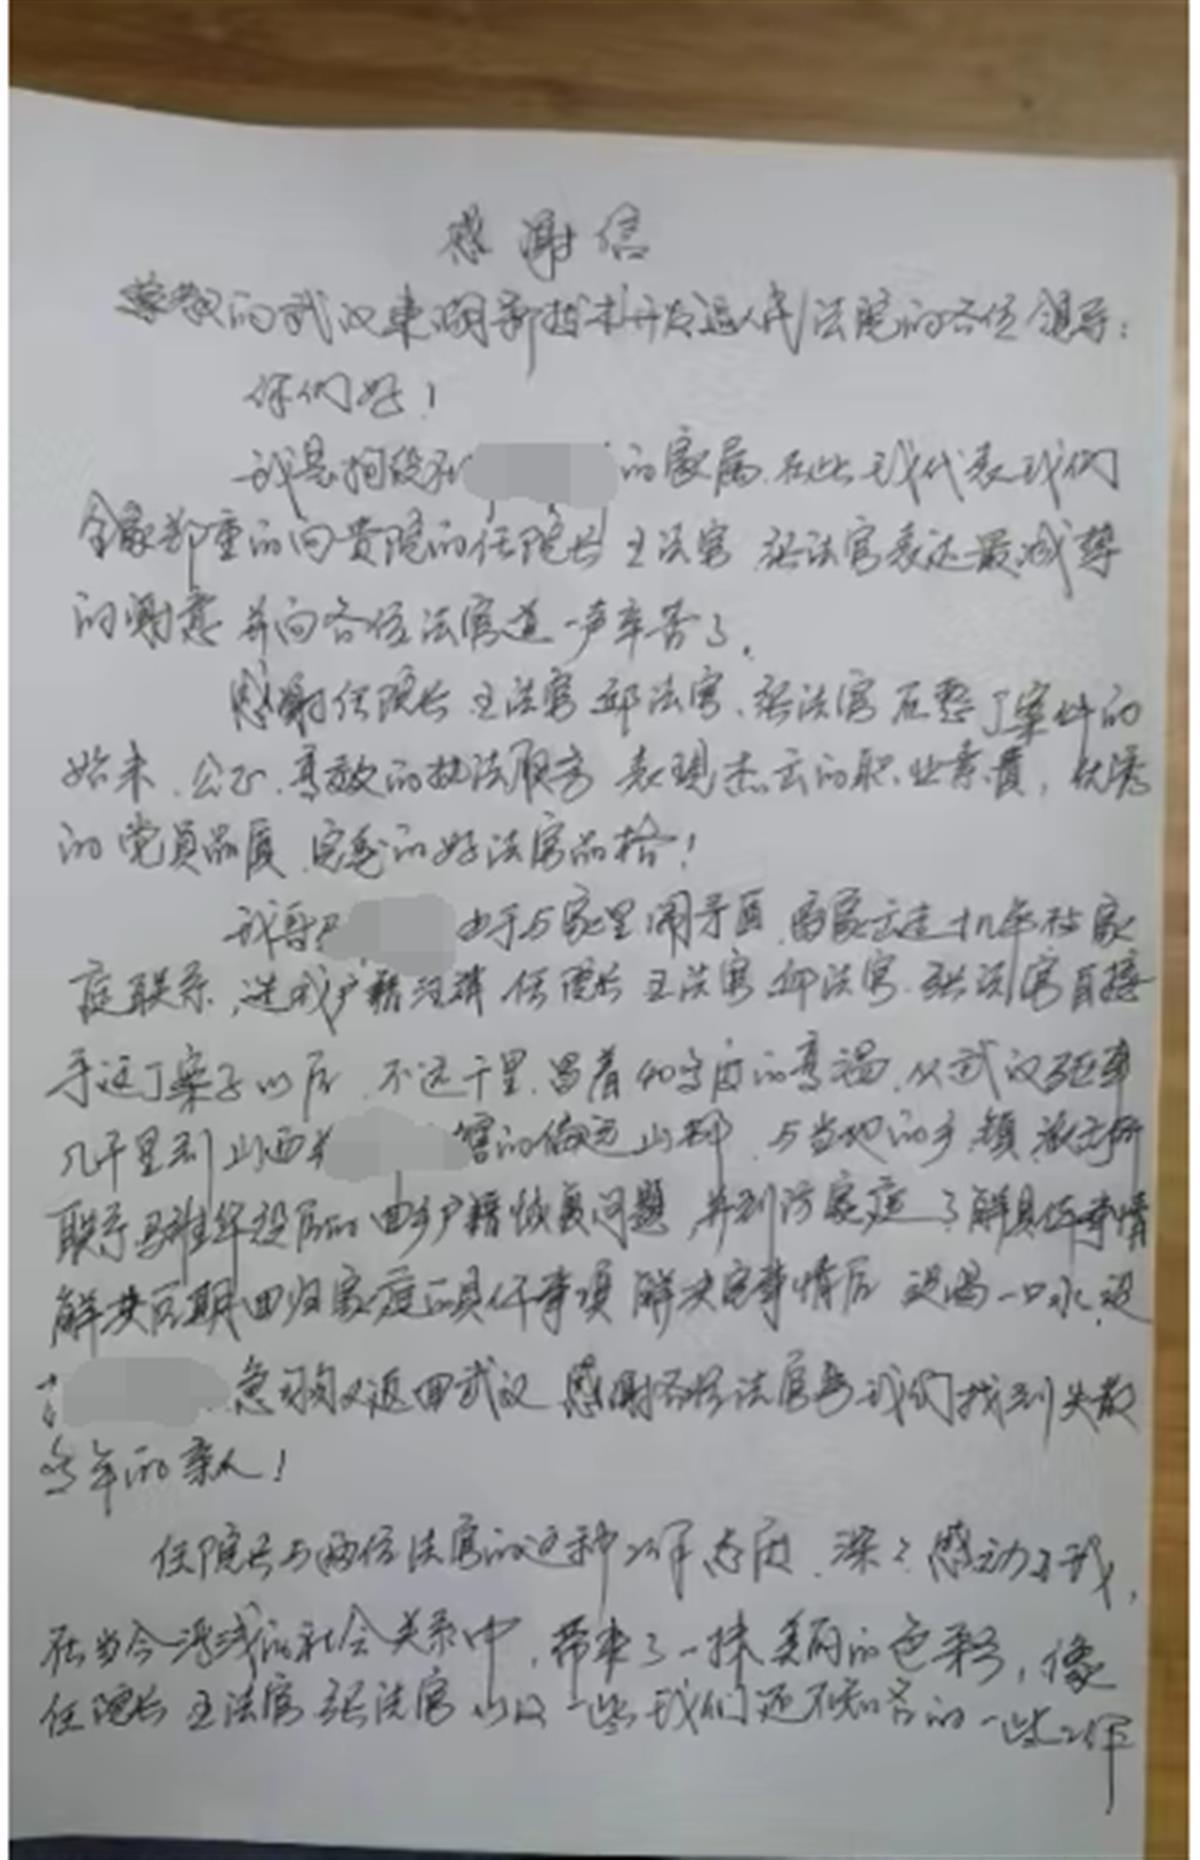 感谢信
尊敬的武汉东湖新技术开发区人民法院的各位领导：
你们好！
我是 的家属.在此我代表我们
全家郑重的向贵院的任院长 王法官.张法官表达最诚挚
的谢意 并向各位法官道一声辛苦了.
感谢任院长.王法官 邱法官、张法官 在整个案件的
始末、公正、高效的执法服务 表现杰出的职业素质，优秀
的党员品质、完美的好法官品格！
我哥 由于与家里闹矛盾.离家出走十几年和家
庭联系,造成户籍注销 任院长 王法官 邱法官.张法官自接
手这个案子以后 不远千里.冒着40多度的高温.从武汉驱车
几千里到山西 的偏远山村 与当地的乡镇.派出所
联系 后的 户籍恢复问题 并到访家庭 了解具体事情
解决后期回归家庭的具体事项 解决完事情后 没喝一口水,没
急匆匆又返回武汉 感谢各位法官为我们找到失散
多年的亲人！
任院长与两位法官的这种工作态度.深深感动了我,
在当今浮浅的社会关系中,带来了一抹美丽的色彩,像
任院长 王法官 张法官 以及一些我们还不知名的一些工作